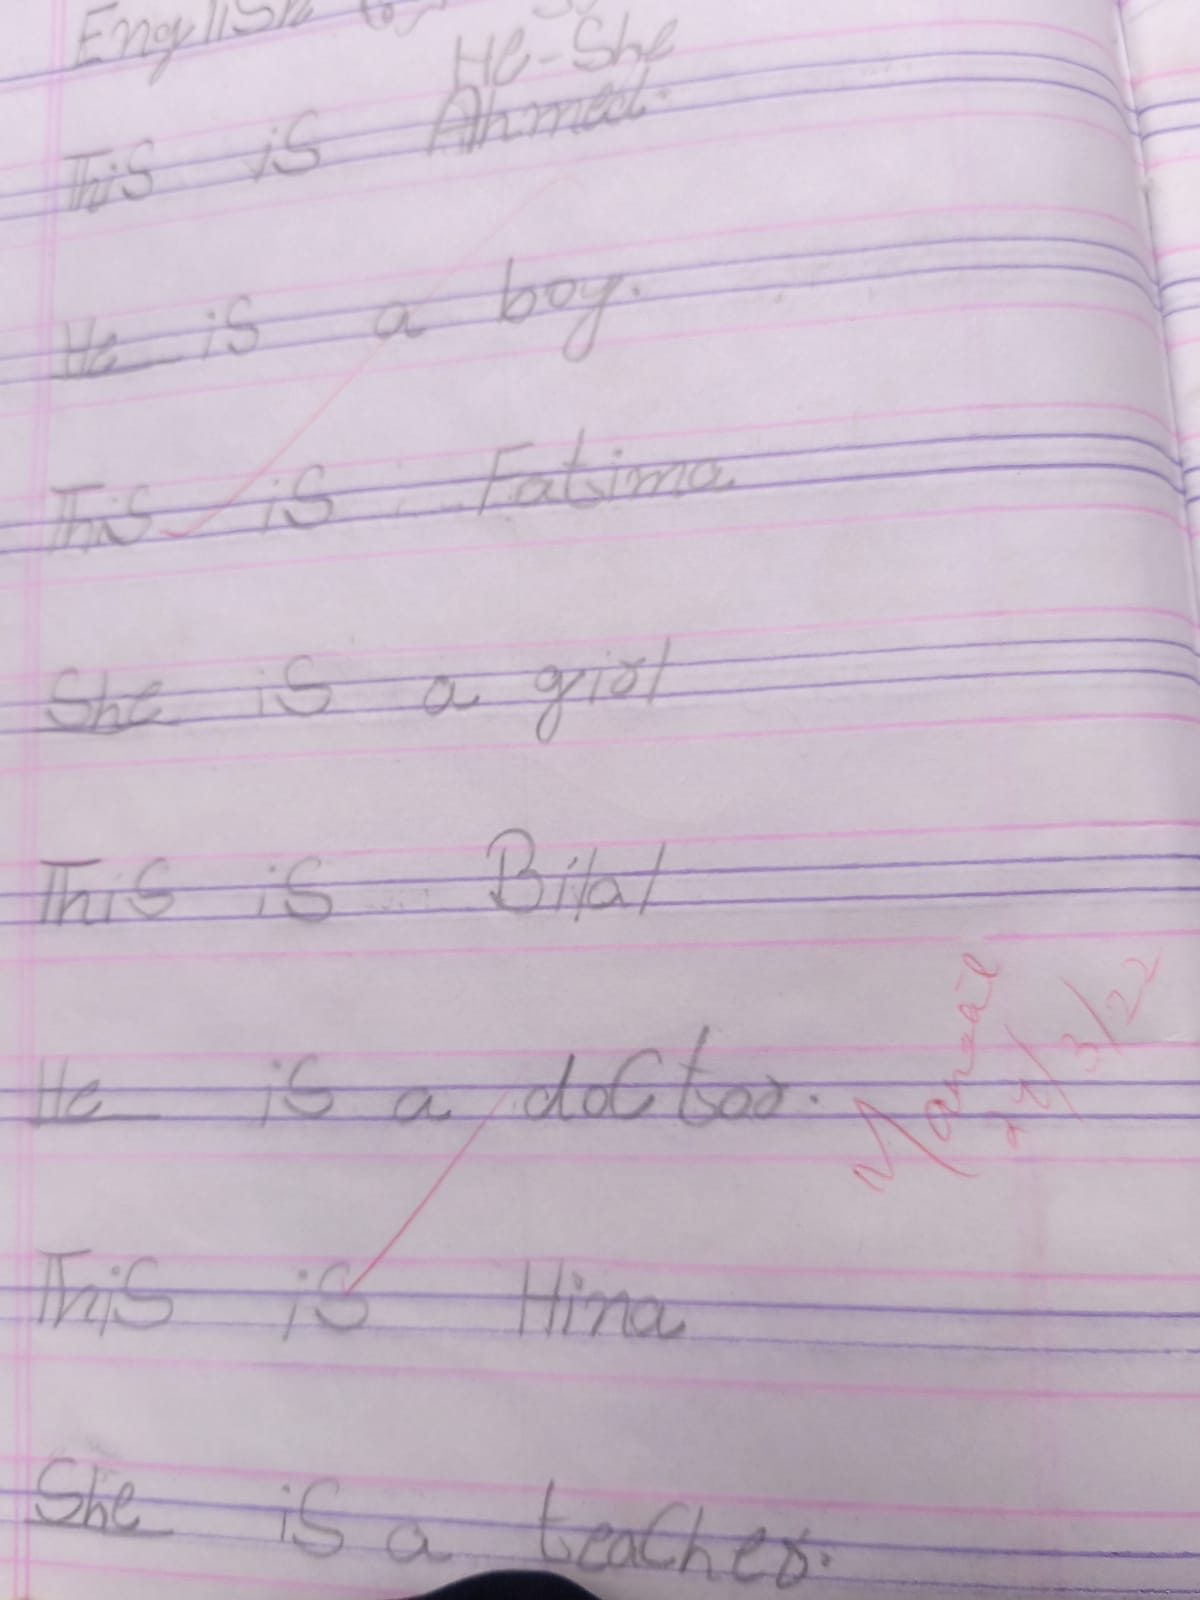 English
He-She
This is Ahmed.
He is a boy.
This is Fatima
She is a girl
This is Bilal
He is a doctor.
This is Hina
She is a teacher.
3/22